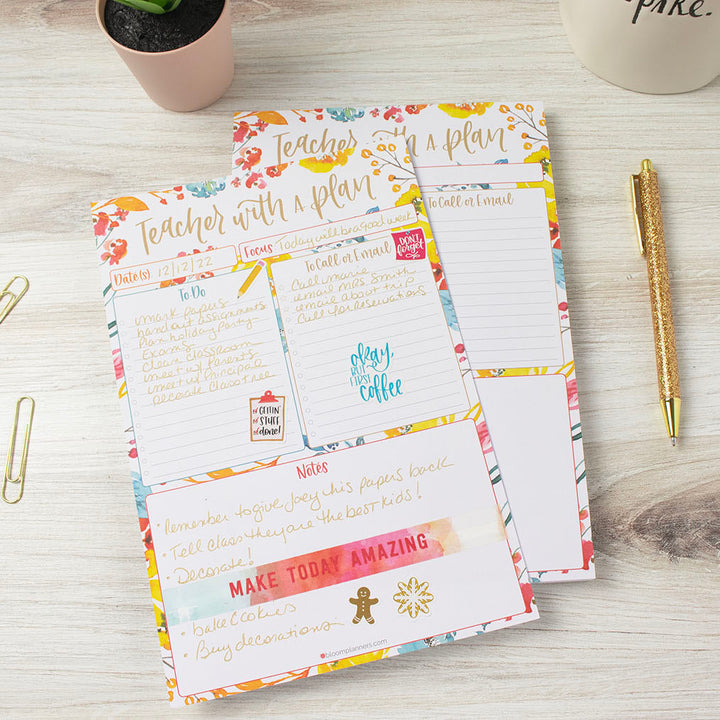 spike.
Teacher with a plan
To Call or Email
Teacher with a plan
Date(s) 12/12/22
Focus Today will be a good week
To Do
Mark papers
handout assignments
Plan holiday Party
Exams
clean classroom
meet w/ Parents
meet w/ Principal
Decorate Class Tree
GETTIN'
STUFF
done!
To Call or Email
DON'T
forget
Call Maria
email Mrs. Smith
email about trip
Call for Reservations
okay,
BUT FIRST
coffee
Notes
• Remember to give Joey his papers back
• Tell class they are the best kids!
• Decorate!
MAKE TODAY AMAZING
• bake Cookies
• Buy decorations
bloomplanners.com